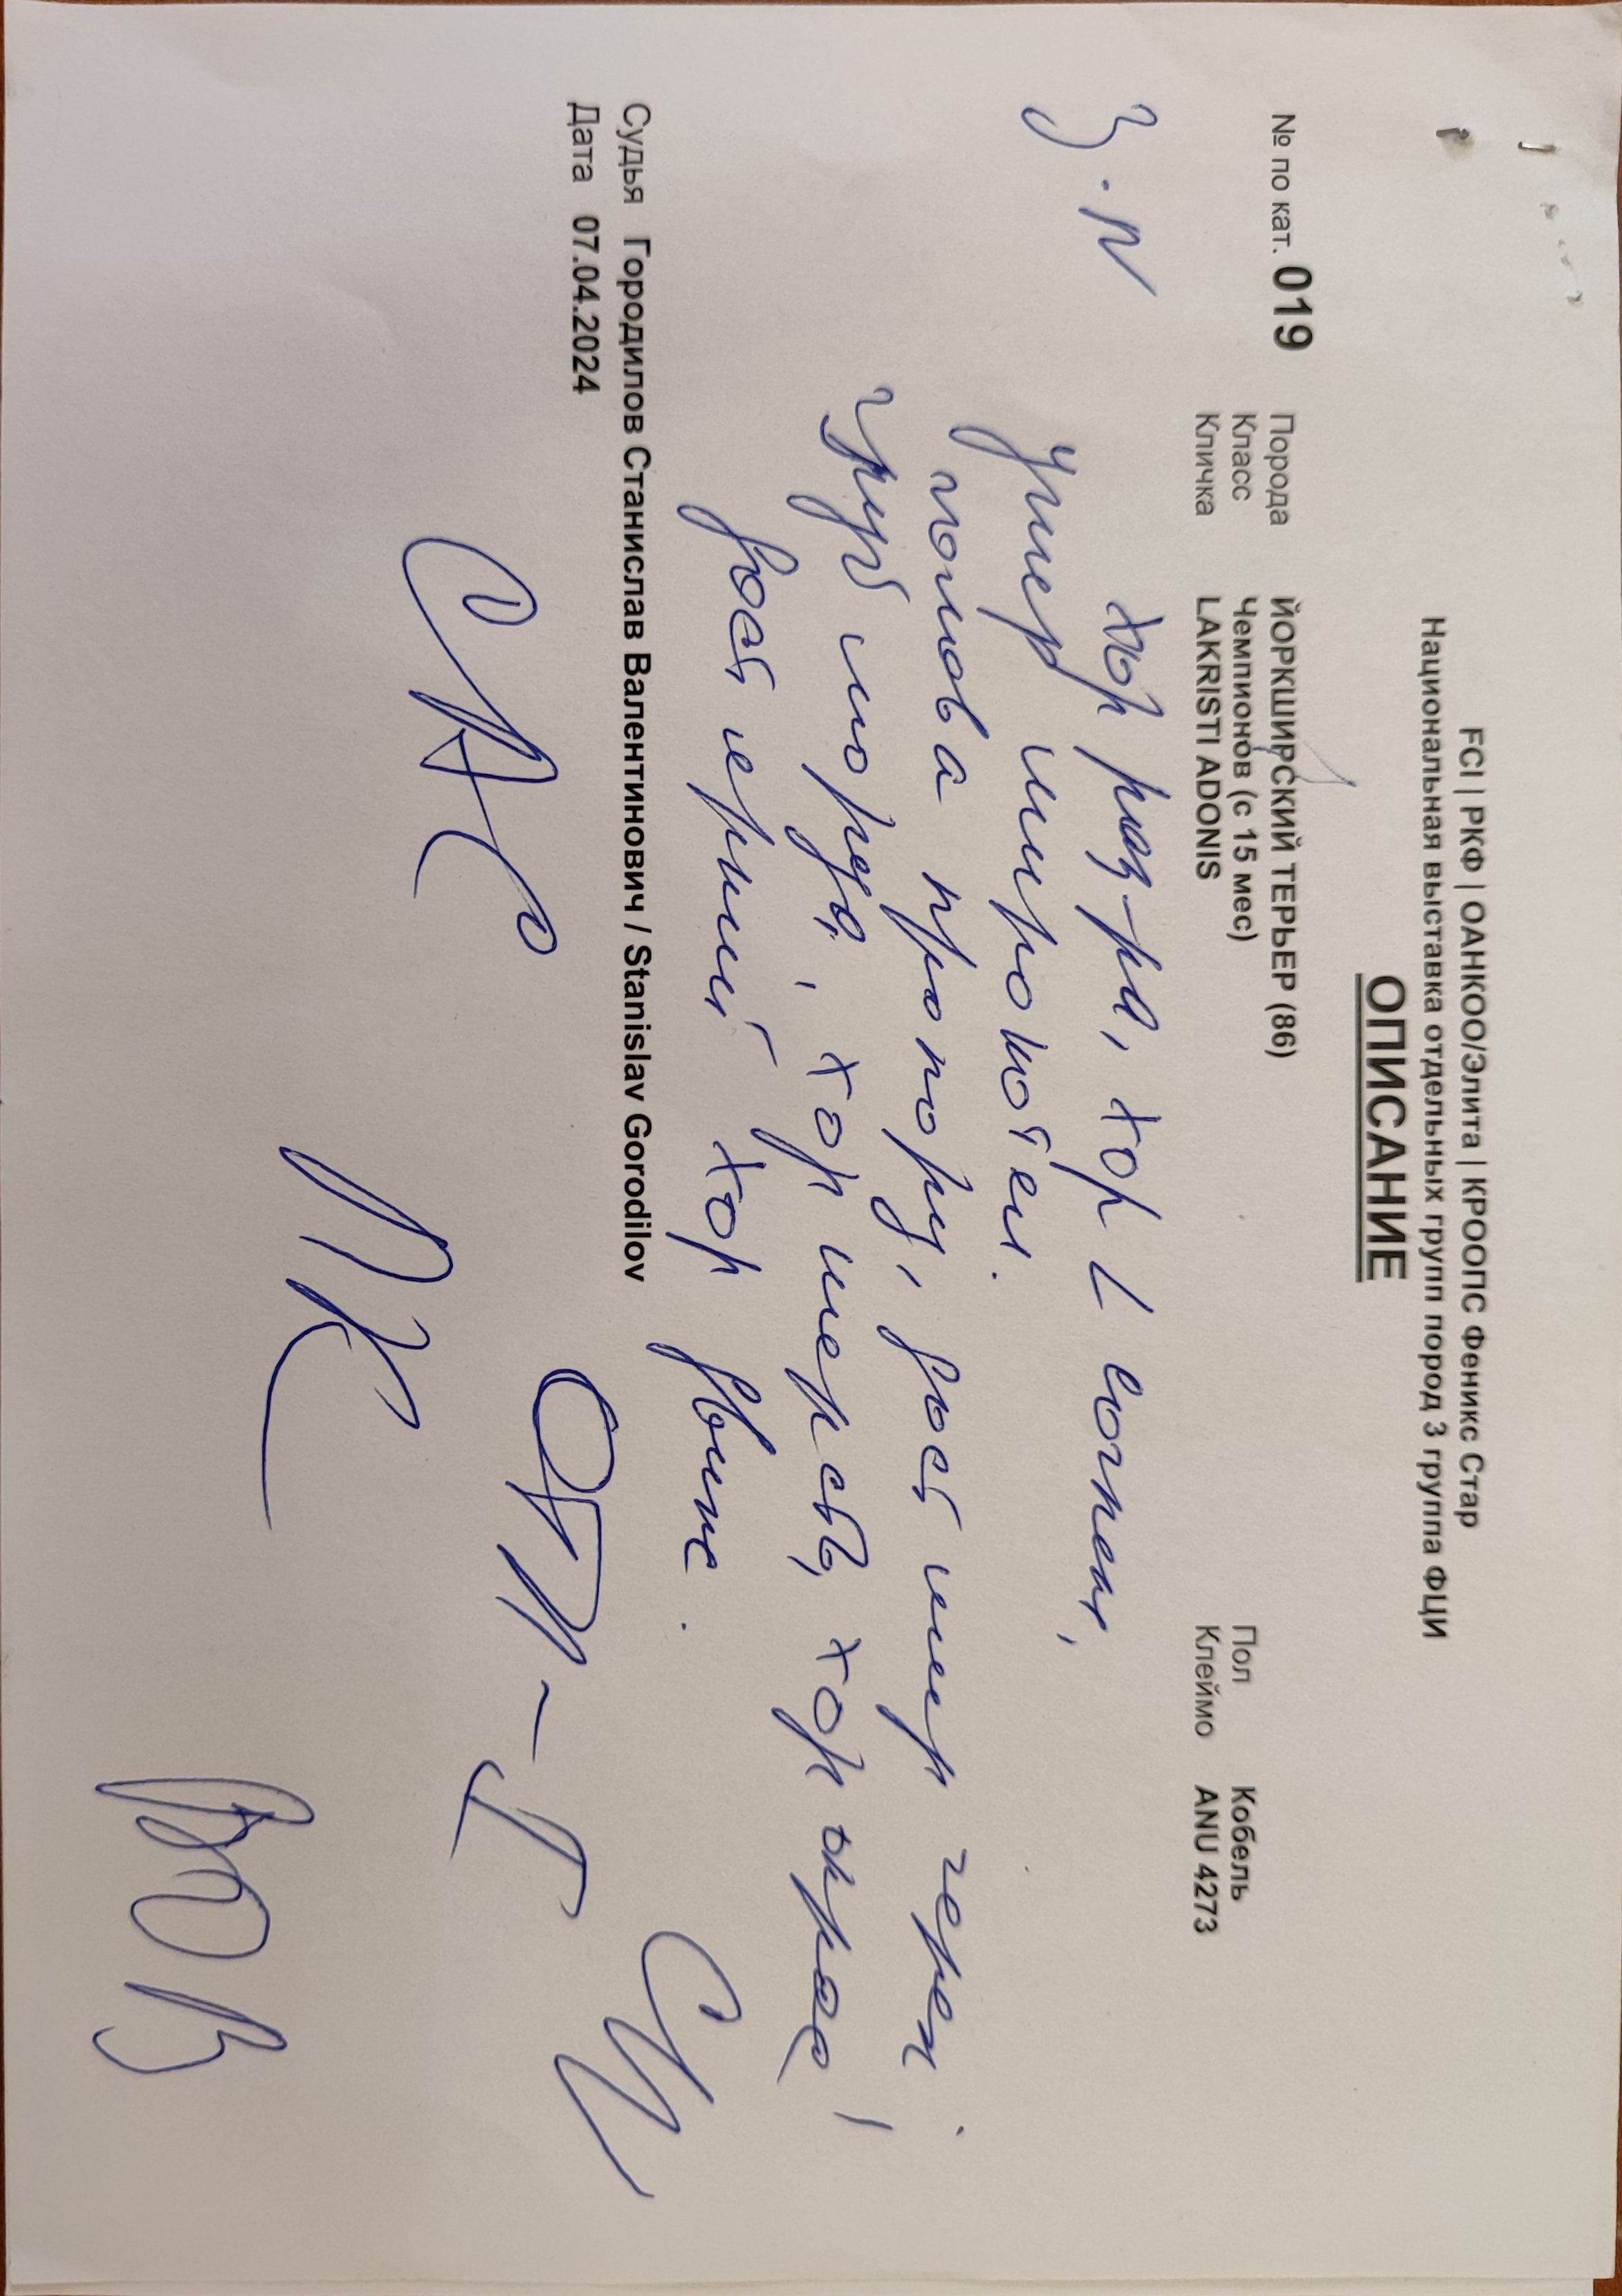 FCI | РКФ | ОАНКОО/Элита | КРООПС Феникс Стар
Национальная выставка отдельных групп пород 3 группа ФЦИ
ОПИСАНИЕ
№ по кат. 019 Порода ЙОРКШИРСКИЙ ТЕРЬЕР (86)
Класс Чемпионов (с 15 мес) Пол Кобель
Кличка LAKRISTI ADONIS Клеймо ANU 4273
З.П хор раз-ра, хор
умер широкотел.
голова пропорц, дост шир череп.
груб морда, хор шерсть, хор окрас,
дост хор движ.
Судья Городилов Станислав Валентинович / Stanislav Gorodilov
Дата 07.04.2024
CAC
ЛК
BOB